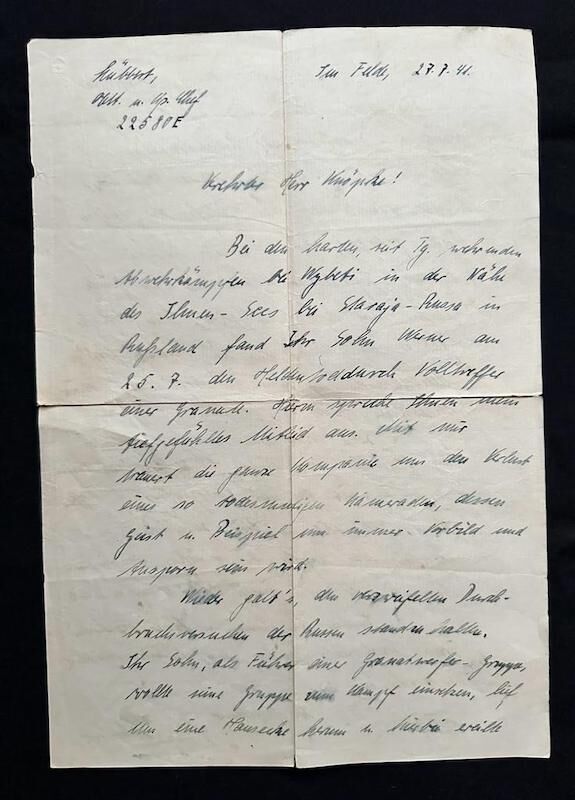 Im Felde, 27.7.41.
Hübbert,
Oblt. u. Kp. Chef
22580E
Verehrter Herr Knöpke!
Bei den harten, seit Tg. währenden
Abwehrkämpfen bei Wybiti in der Nähe
des Ilmen-Sees bei Staraja-Russa in
Rußland fand Ihr Sohn Werner am
25.7. den Heldentod durch Volltreffer
einer Granate. Hierin spreche Ihnen mein
tiefgefühltes Mitleid aus. Mit mir
trauert die ganze Kompanie um den Verlust
eines so todesmutigen Kameraden, dessen
Geist u. Beispiel uns immer Vorbild und
Ansporn sein wird.
Wieder galt's, den verzweifelten Durch-
bruchsversuchen der Russen standzuhalten.
Ihr Sohn, als Führer einer Granatwerfer-Gruppe,
wollte seine Gruppe zum Kampf einsetzen, lief
um eine Hausecke herum u. hierbei ereilte